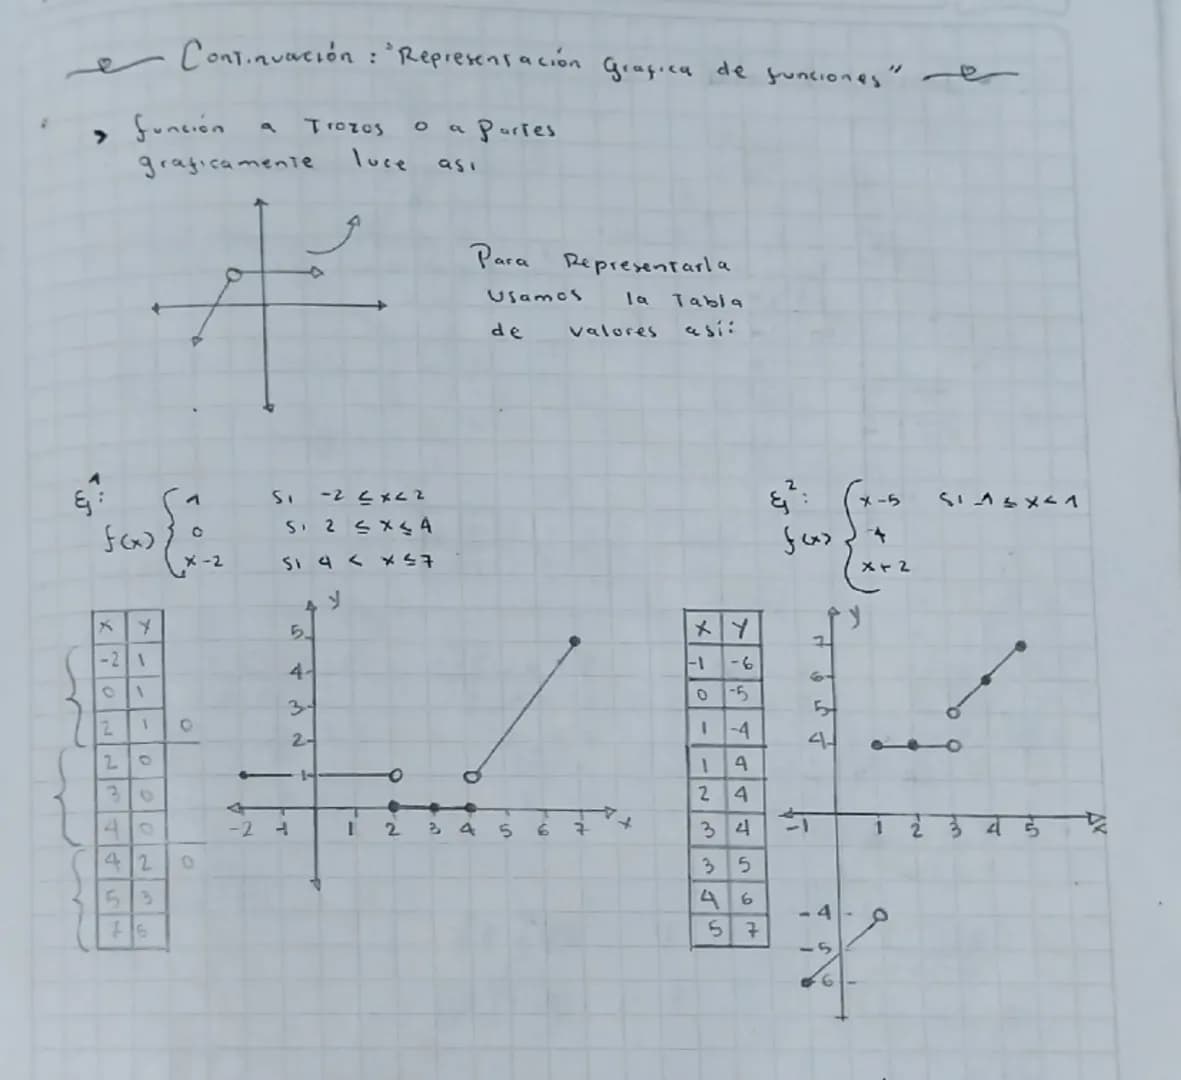 Continuación: "Representación Grafica de funciones"
> función a Trozos o a Partes
graficamente luce asi
Para Representarla
usamos la Tabla
de valores así:
Ej 1:
f(x) { 1 si -2 ≤ x < 2
0 si 2 ≤ x ≤ 4
x-2 si 4 < x ≤ 7
x y
-2 1
0 1
2 1 o
2 0
3 0
4 0
4 2 o
5 3
7 5
y
5
4
3
2
1
-2 -1 1 2 3 4 5 6 7 x
Ej 2:
f(x) { x-5 si -1 ≤ x < 1
4
x+2
x y
-1 -6
0 -5
1 -4
1 4
2 4
3 4
3 5
4 6
5 7
y
7
6
5
4
-1 1 2 3 4 5 x
-4
-5
-6